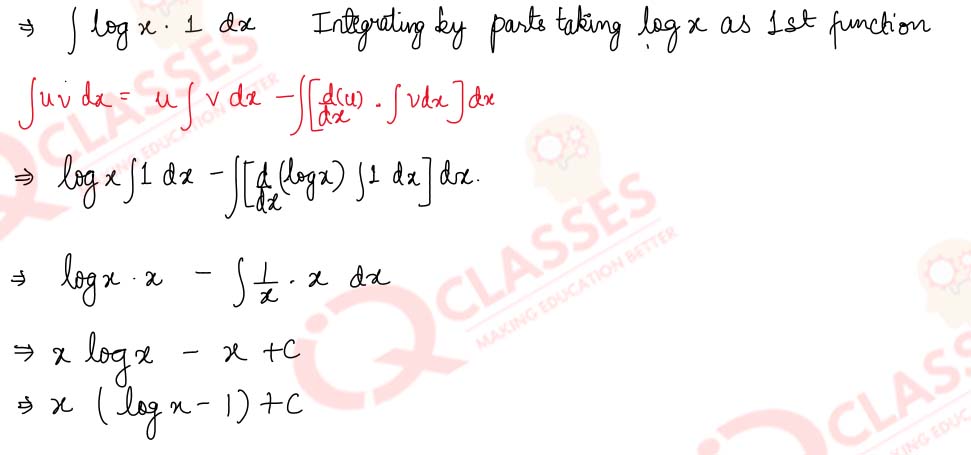 ⇒ ∫ log x · 1 dx Integrating by parts taking log x as 1st function
∫ u v dx = u ∫ v dx − ∫ [ d/dx (u) · ∫ v dx ] dx
⇒ log x ∫ 1 dx − ∫ [ d/dx (log x) ∫ 1 dx ] dx.
⇒ log x · x − ∫ 1/x · x dx
⇒ x log x − x + C
⇒ x ( log x − 1 ) + C
CLASSES
MAKING EDUCATION BETTER
CLASSES
MAKING EDUCATION BETTER
CLASS
KING EDUC